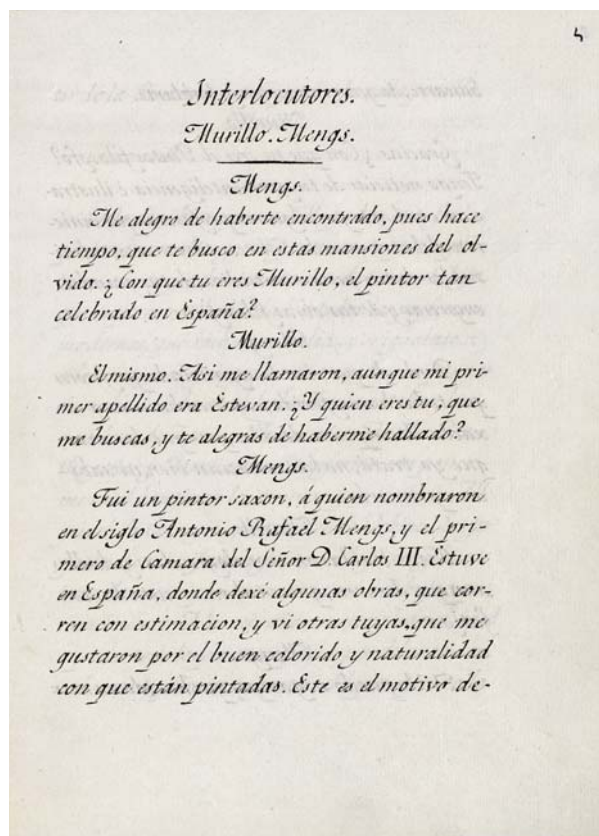 5
Interlocutores.
Murillo. Mengs.
Mengs.
Me alegro de haberte encontrado, pues hace
tiempo, que te busco en estas mansiones del ol-
vido. ¿Con que tu eres Murillo, el pintor tan
celebrado en España?
Murillo.
El mismo. Asi me llamaron, aunque mi pri-
mer apellido era Estevan. ¿Y quien eres tu, que
me buscas, y te alegras de haberme hallado?
Mengs.
Fui un pintor saxon, á quien nombraron
en el siglo Antonio Rafael Mengs, y el pri-
mero de Camara del Señor D. Carlos III. Estuve
en España, donde dexé algunas obras, que cor-
ren con estimacion, y vi otras tuyas, que me
gustaron por el buen colorido y naturalidad
con que están pintadas. Este es el motivo de-